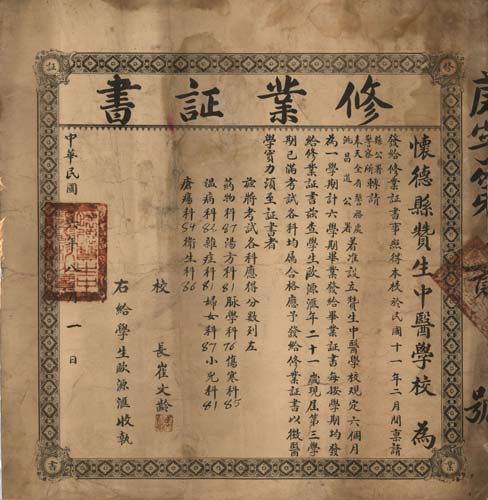 修業証書
懷德縣贊生中醫學校 為
發給修業証書事照得本校於民國十一年二月間稟請
縣公署
警察所轉請
奉天全省警務處
洮昌道公署
著准設立贊生中醫學校規定六個月
為一學期計六學期畢業發給畢業証書每按學期均發
給修業証書茲查學生歐源滙年二十一歲現屆第三學
期已滿考試各科均屬合格應予發給修業証書以徵醫
學實力須至証書者
茲將考試各科應得分數列左
葯物科87湯方科81脈學科76傷寒科85
溫病科82雜症科81婦女科87小兒科81
瘡瘍科84衛生科86
校長崔文齡
右給學生歐源滙收執
中華民國
年八月一日
號
証
修
書
業